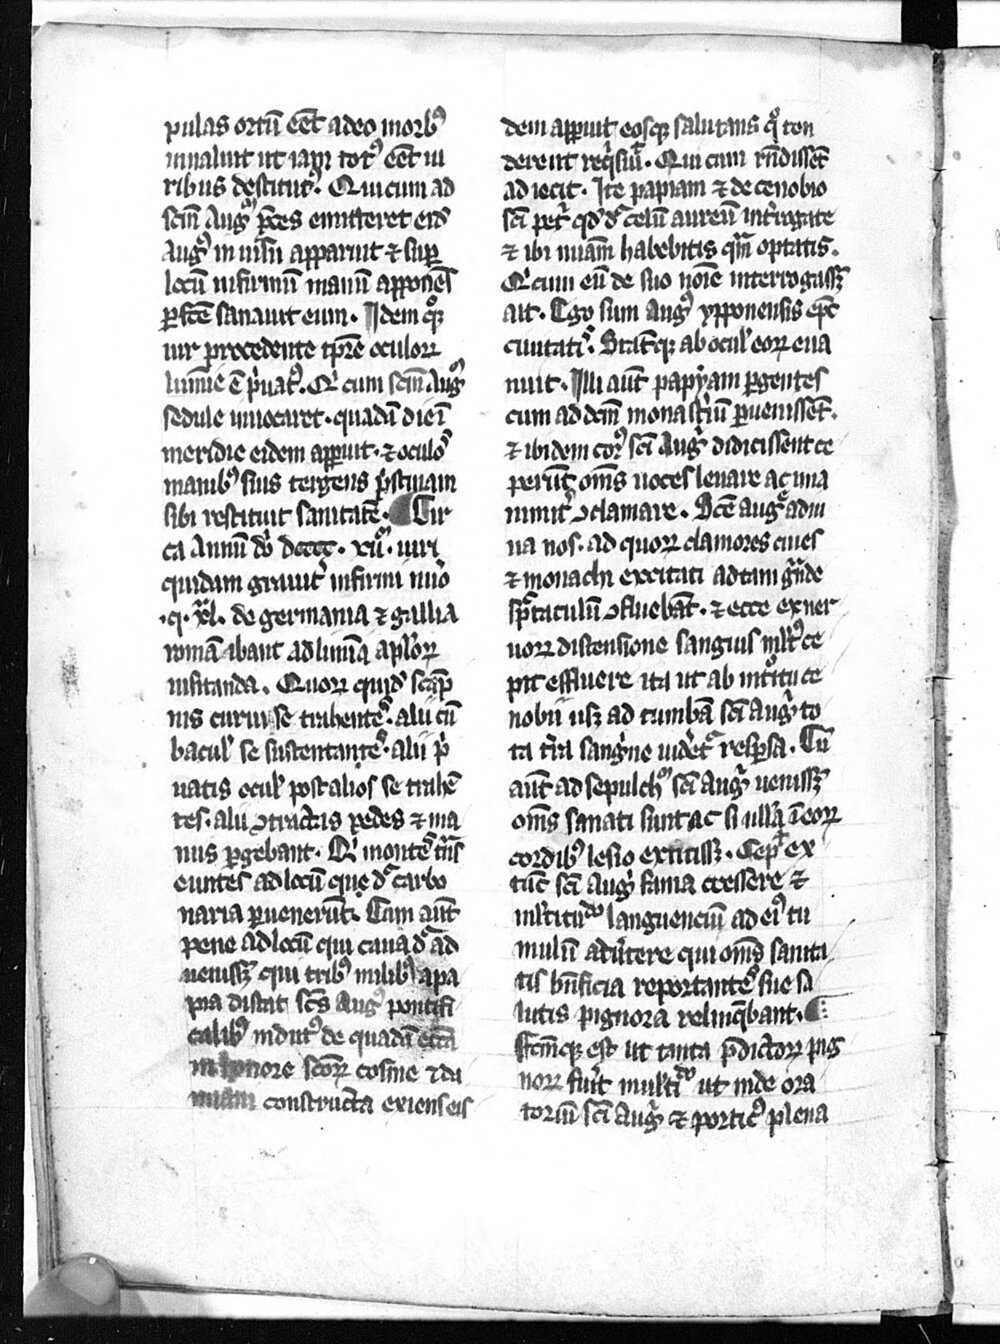 pulas ortū eēt adeo morbꝰ
inualuit ut iam totꝰ eēt ui
ribus destitutꝰ. Qui cum ad
scm̄ Augꝰ p̄ces emitteret eidē
Augꝰ in uisu apparuit ⁊ suꝑ
locū infirmū manū apponēs
ꝑfcē sanauit eum. Idem qͦꝫ
uir precedente tp̄re oculoꝝ
lumīe ē p̍uatꝰ. Qͥ cum scm̄ Augꝰ
sedule inuocaret. quadā die ī
meridie eidem apꝑuit. ⁊ oculoˢ
manibꝰ suis tergens p̍stinam
sibi restituit sanitatē. Cir
ca Annū dn̄i dcccc. xii. uiri
quidam grauit̄ infirmi nūo
.q. xl. de germania ⁊ gallia
romā ibant ad limina apl̄oꝝ
uisitanda. Quoꝝ quidā scāp
nis curui se trahenteˢ. alii cū
bacul̄ se sustentanteˢ. alii p̍
uatis ocul̄ post alios se trahē
tes. alii ɔtractis pedes ⁊ ma
nus ꝑgebant. Qͥ monteˢ tn̄s
euntes ad locū que dr̄ carbo
naria ꝑuenerūt. Cum aūt
pene ad locū qui caua dr̄ ad
uenissꝫ qui tribꝰ milibꝰ a pa
pia distat sc̄s Augꝰ pontifi
calibꝰ indutꝰ de quadā eccā
in honore scoꝝ cosme ⁊ da
miani constructa exiens eis
dem apꝑuit eosqꝫ salutans qͦ ten
derent reqͥsiuit. Qui cum rn̄dissēt
adiecit. Ite papiam ⁊ de cenobio
sc̄i petͥ qd̄ dr̄ celū aureū int̄rogate
⁊ ibi miam̄ habebitis qm̄ optatis.
Qͥ cum eū de suo noīe interrogassꝫ
ait. Ego sum Augꝰ ypponensis ep̄c
ciuitatiˢ. Statīqꝫ ab ocul̄ eoꝝ eua
nuit. Illi aūt papyam ꝑgentes
cum ad dcm̄ monastͥiū ꝑuenissēt.
⁊ ibidem corꝰ sc̄i Augͥ didicissent ce
perūt om̄s uoces leuare ac una
nimit̄ ɔclamare. Sc̄e Augͤ adiu
ua nos. ad quoꝝ clamores ciues
⁊ monachi excitati ad tam gͣnde
spͨtaculū ɔfluebāt. ⁊ ecce ex ner
uoꝝ distensione sanguis ml̄tꝰ ce
pit effluere ita ut ab int̊itu ce
nobii usꝫ ad tumbā sc̄i Augͥ to
ta t̄ra sangͥne uidet̄ resꝑsa. Cū
aūt ad sepulchͦꝫ sc̄i Augͥ uenissꝫ
om̄s sanati sunt ac si ulla ī eoꝝ
cordibꝰ lesio extitissꝫ. Cepͭ ex
tūc sc̄i Augͥ fama crescere ⁊
ml̄titudͦ languenciū ad eiꝰ tu
mulū aduͤtere qui om̄s sanita
tis bn̄ficia reportanteˢ sue sa
lutis pignora relinqͣbant.
ffcm̄qꝫ est ut tanta p̄dictoꝝ pig
noꝝ fuit̄ multidͦ ut inde ora
toriū sc̄i Augͥ ⁊ porticꝰ plena